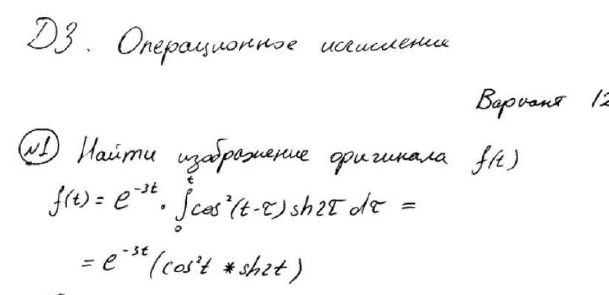 ДЗ. Операционное исчисление
Вариант 12
№1 Найти изображение оригинала f(t)
f(t) = e^{-3t} · ∫₀ᵗ cos²(t-τ) sh2τ dτ =
= e^{-3t} (cos²t * sh2t)